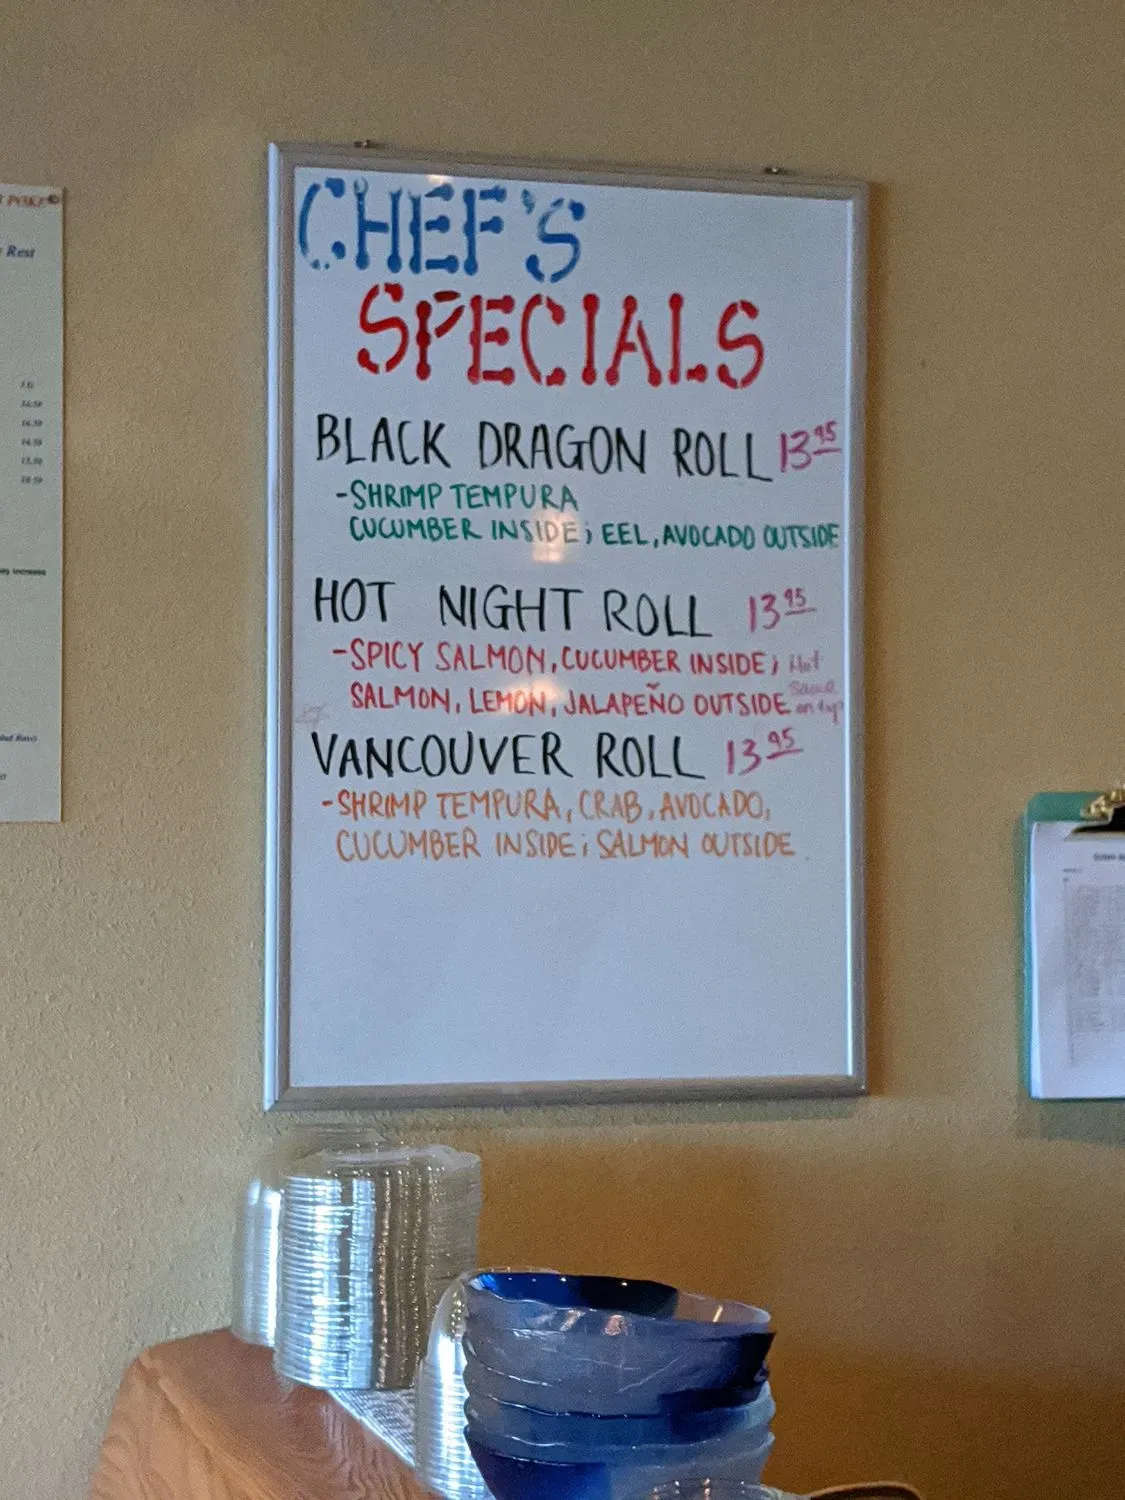 POKE©
Rest
CHEF'S
SPECIALS
BLACK DRAGON ROLL 13 95
-SHRIMP TEMPURA
CUCUMBER INSIDE; EEL, AVOCADO OUTSIDE
HOT NIGHT ROLL 13 95
-SPICY SALMON, CUCUMBER INSIDE; Hot
SALMON, LEMON, JALAPEÑO OUTSIDE Sauce
on top
VANCOUVER ROLL 13 95
-SHRIMP TEMPURA, CRAB, AVOCADO,
CUCUMBER INSIDE; SALMON OUTSIDE